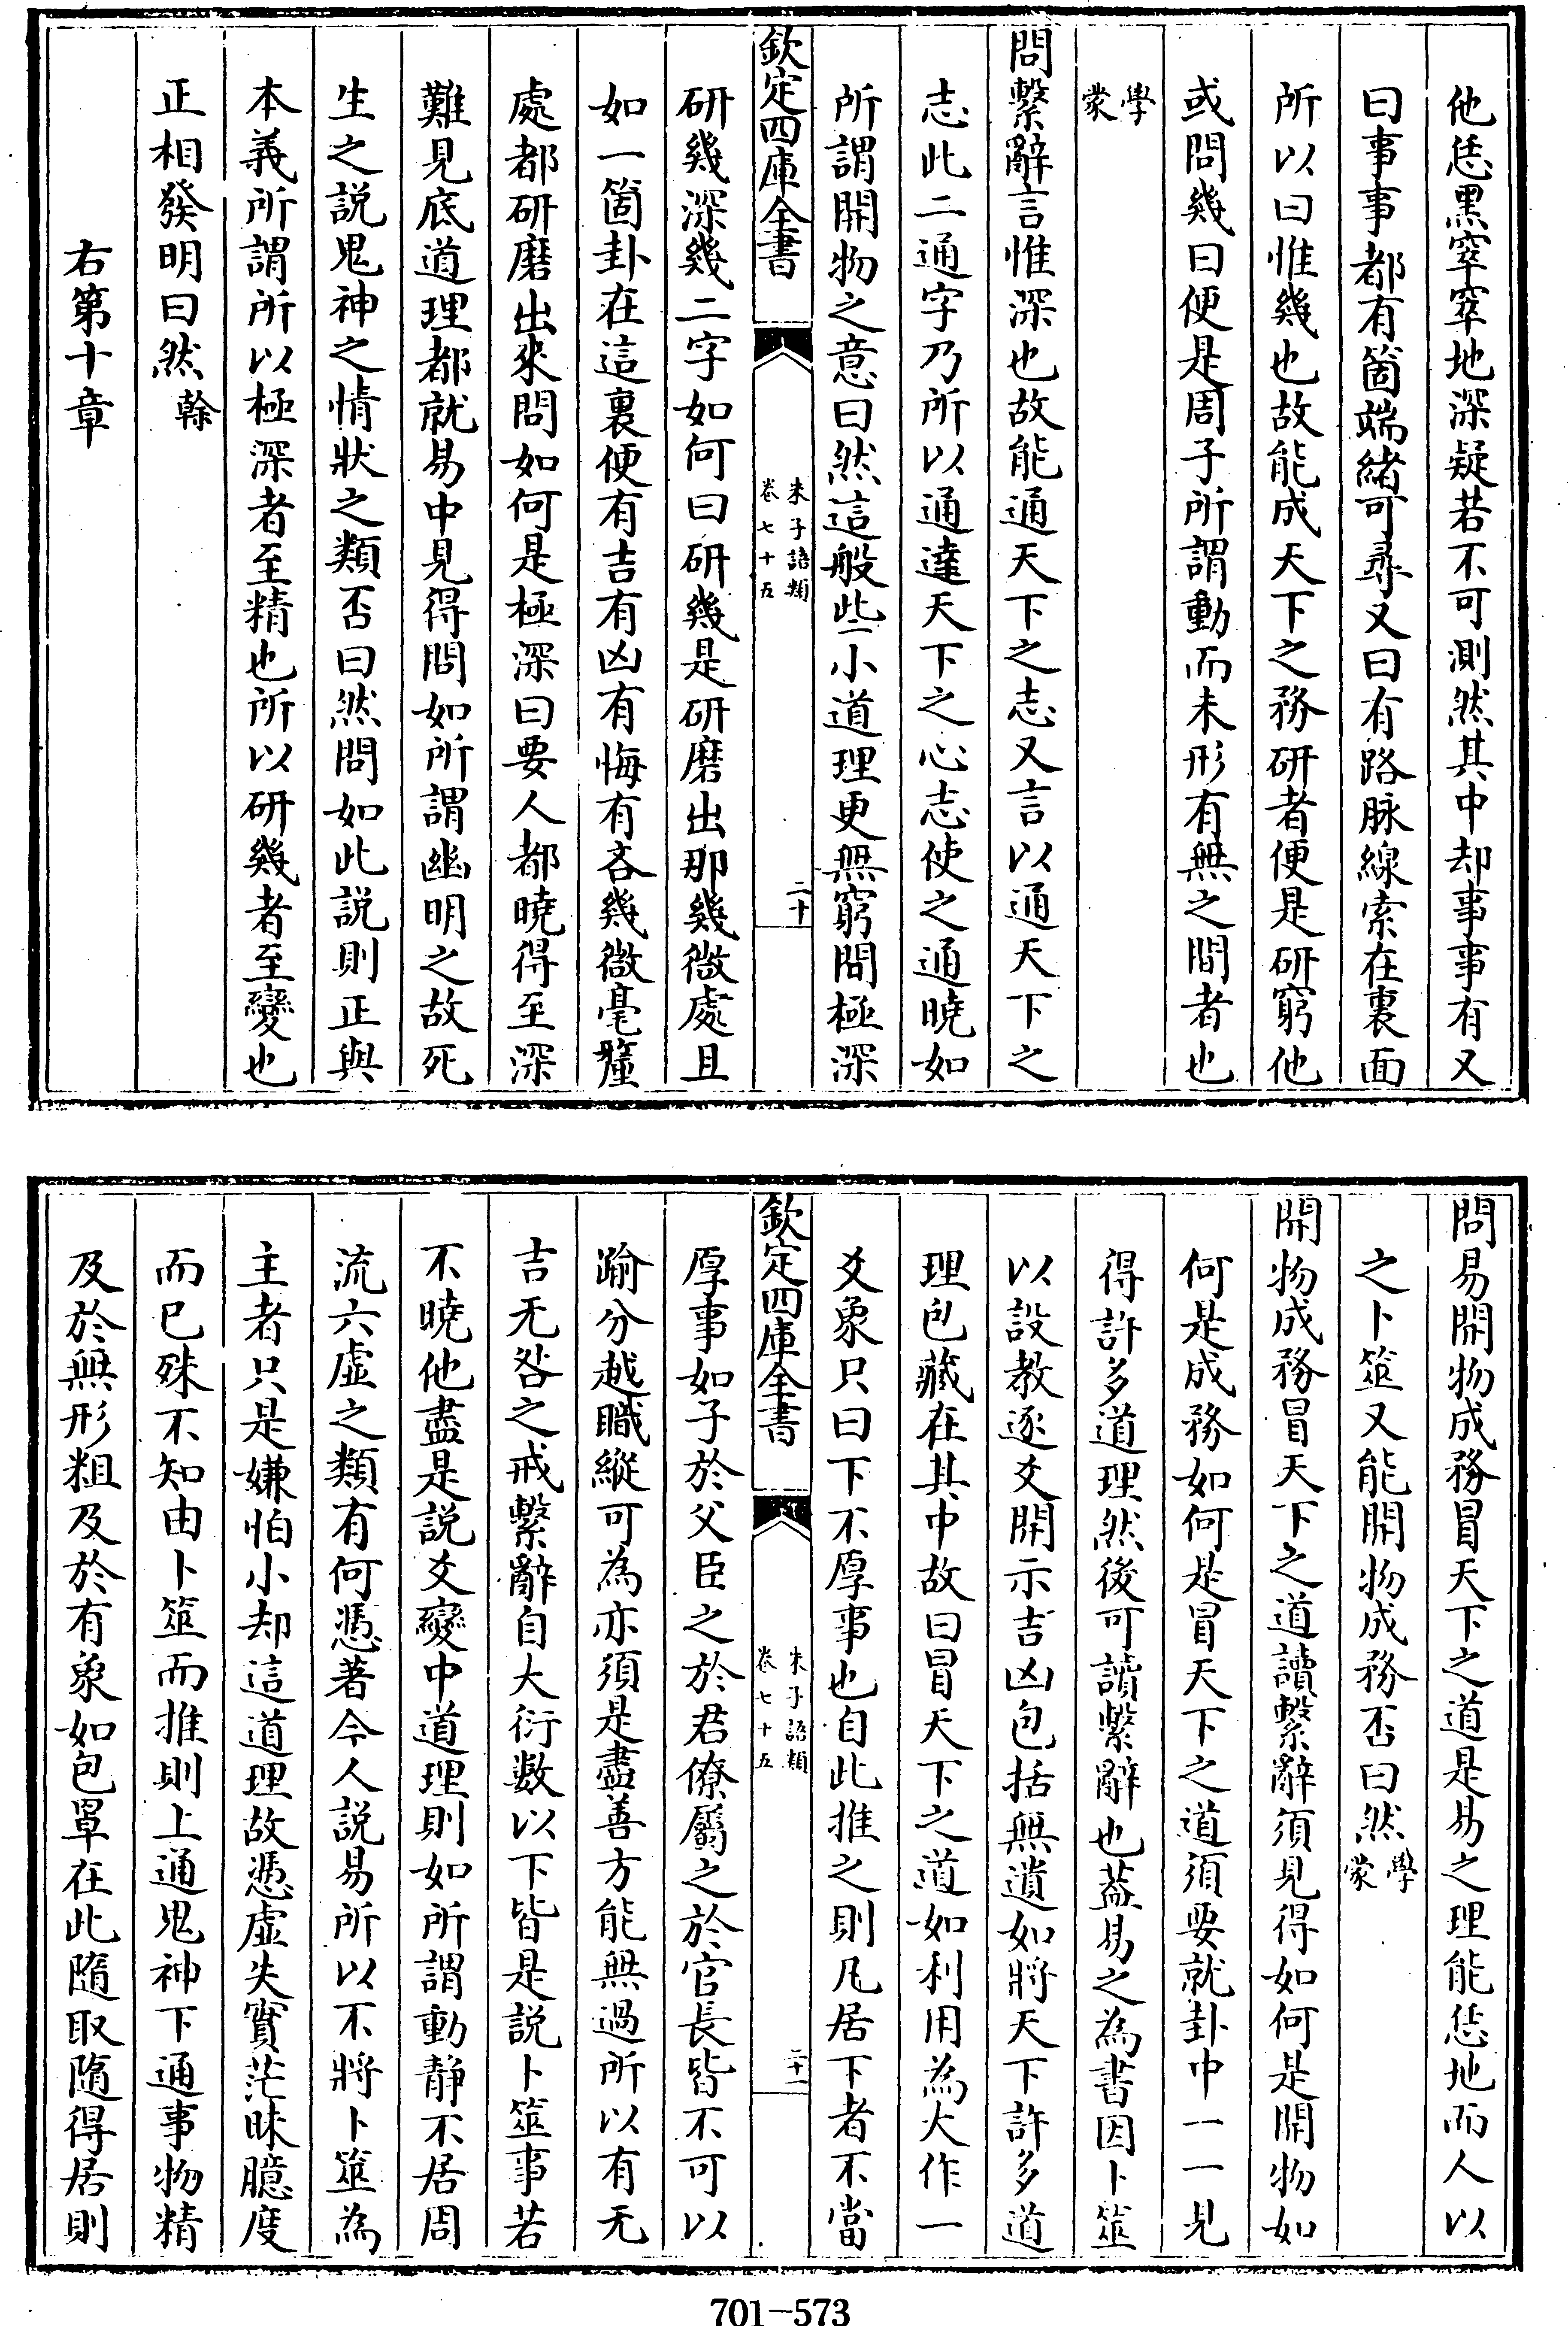 他恁黑窣窣地深疑若不可測然其中却事事有又
曰事事都有箇端緒可尋又曰有路脉線索在裏面
所以曰惟幾也故能成天下之務研者便是研窮他
或問幾曰便是周子所謂動而未形有無之間者也
學蒙
問繫辭言惟深也故能通天下之志又言以通天下之
志此二通字乃所以通達天下之心志使之通曉如
所謂開物之意曰然這般些小道理更無窮問極深
欽定四庫全書
朱子語類
卷七十五
二十
研幾深幾二字如何曰研幾是研磨出那幾微處且
如一箇卦在這裏便有吉有凶有悔有吝幾微毫釐
處都研磨出來問如何是極深曰要人都曉得至深
難見底道理都就易中見得問如所謂幽明之故死
生之說鬼神之情狀之類否曰然問如此說則正與
本義所謂所以極深者至精也所以研幾者至變也
正相發明曰然榦
右第十章
問易開物成務冒天下之道是易之理能恁地而人以
之卜筮又能開物成務否曰然學蒙
開物成務冒天下之道讀繫辭須見得如何是開物如
何是成務如何是冒天下之道須要就卦中一一見
得許多道理然後可讀繫辭也蓋易之為書因卜筮
以設教逐爻開示吉凶包括無遺如將天下許多道
理包藏在其中故曰冒天下之道如利用為大作一
爻象只曰下不厚事也自此推之則凡居下者不當
欽定四庫全書
朱子語類
卷七十五
二十一
厚事如子於父臣之於君僚屬之於官長皆不可以
踰分越職縱可為亦須是盡善方能無過所以有无
吉无咎之戒繫辭自大衍數以下皆是說卜筮事若
不曉他盡是說爻變中道理則如所謂動靜不居周
流六虛之類有何憑著今人說易所以不將卜筮為
主者只是嫌怕小却這道理故憑虛失實茫昧臆度
而已殊不知由卜筮而推則上通鬼神下通事物精
及於無形粗及於有象如包罩在此隨取隨得居則
701-573